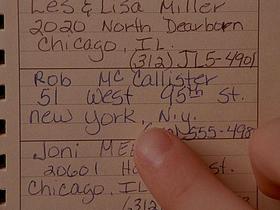 Les & Lisa Miller
2020 North Dearborn
Chicago, IL.
(312) JL5-4901
Rob McCallister
51 West 95th St.
New York, N.Y.
555-498
Joni
20601 St.
Chicago, IL
(312